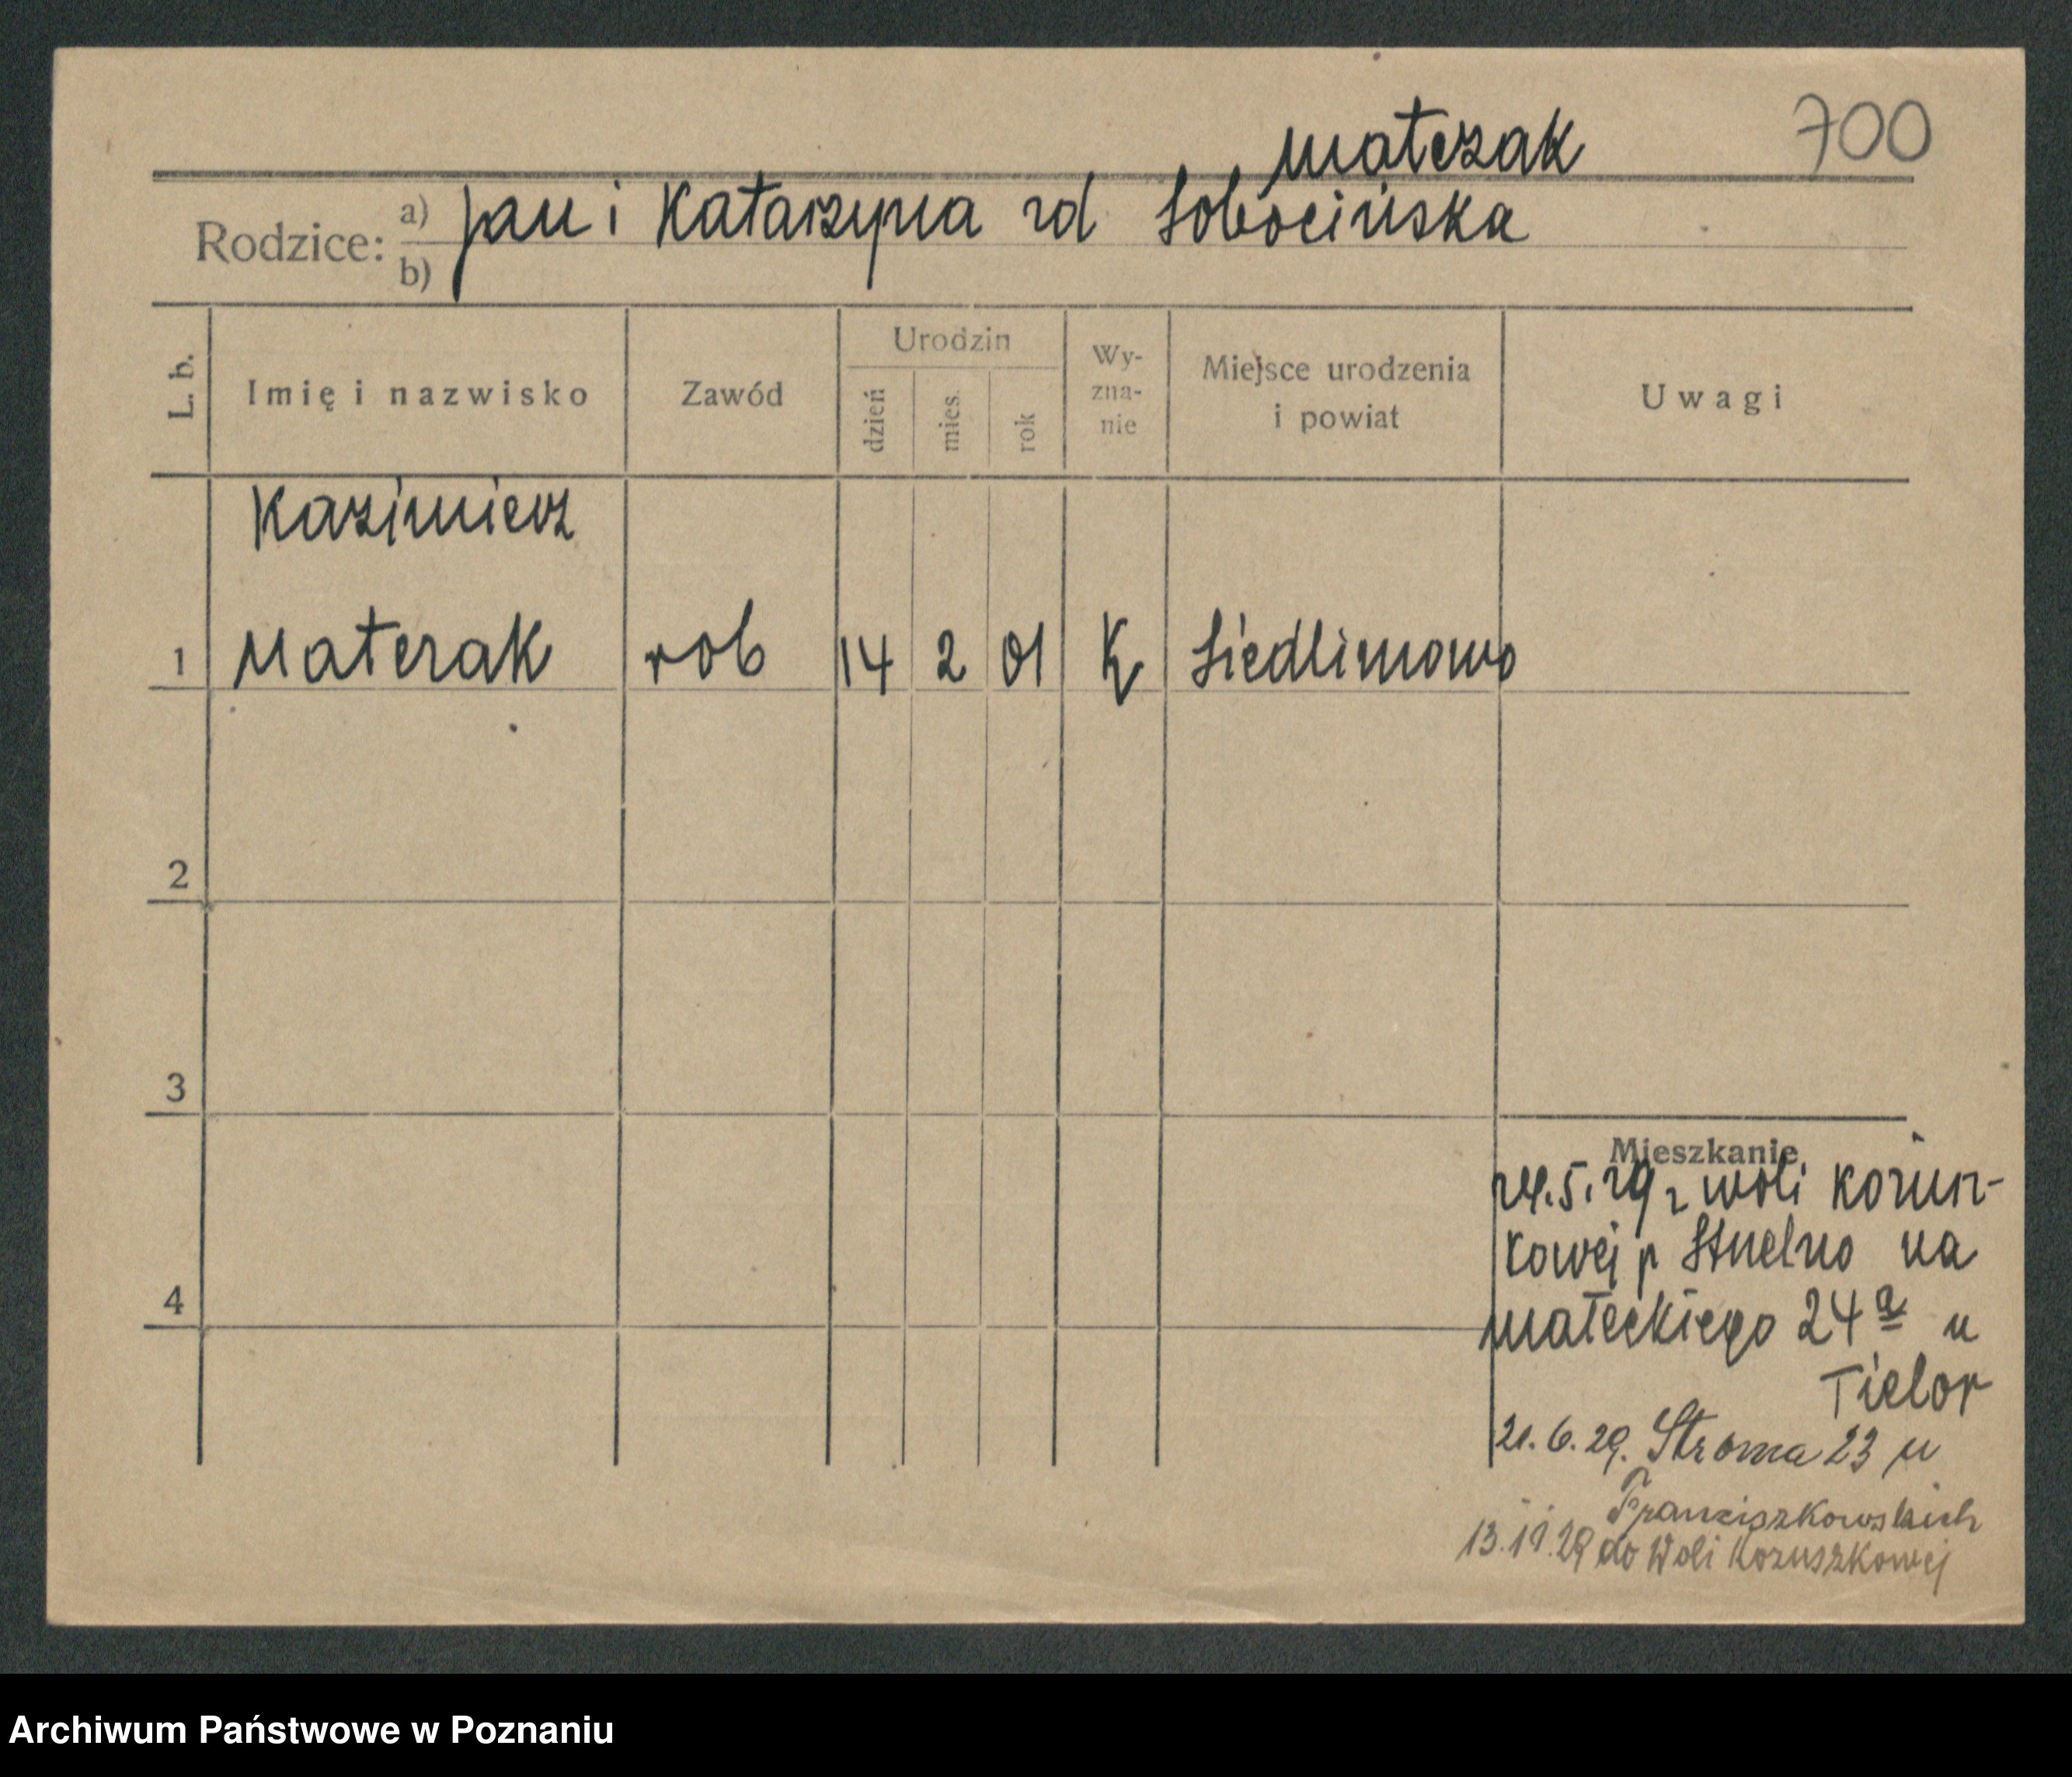 Matczak
700
Rodzice: a) Jan i Katarzyna rd Sobocińska
b)
L. b.
Imię i nazwisko
Zawód
Urodzin
dzień
mies.
rok
Wy-
zna-
nie
Miejsce urodzenia
i powiat
Uwagi
Kazimierz
1 Materak rob 14 2 01 K Siedlimowo
2
3
4
Mieszkanie
24.5.29 z Woli
kowej p Stnelno na
Małeckiego 24a u
Tielor
21.6.29. Stroma 23 u
Franciszkowskich
13.11.29 do Woli Kozuszkowej
Archiwum Państwowe w Poznaniu